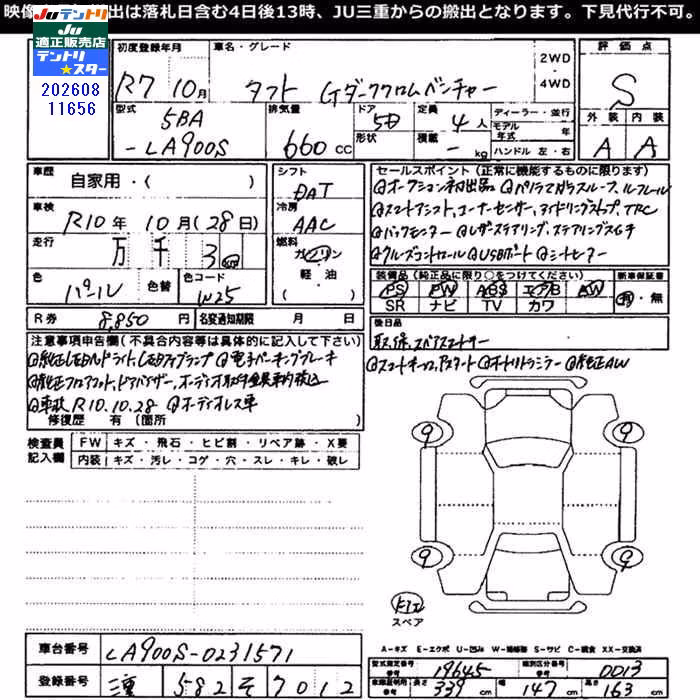 映像 出は落札日含む4日後13時、JU三重からの搬出となります。下見代行不可。
JUテントリ
JU適正販売店
テントリ★スター
202608
11656
初度登録年月 車名・グレード 2WD・4WD 評価点
R7 10月 タフト Gダーククロムベンチャー S
型式 排気量 ドア 形状 定員 積載 ディーラー・並行 外装 内装
5BA 5D 4人 モデル年式 年
-LA900S 660cc - kg ハンドル 左・右 A A
車歴 シフト セールスポイント(正常に機能するものに限ります)
自家用・( ) DAT
◎オークション初出品 ◎パノラマガラスルーフ、ルーフレール
車検 冷房 ◎スマートアシスト、コーナーセンサー、アイドリングストップ、TRC
R10年 10月(28日) AAC ◎バックモニター ◎レザーステアリング、ステアリングスイッチ
走行 燃料 ◎クルーズコントロール ◎USBポート ◎シートヒーター
万 千 3km ガソリン
軽油
装備品(純正品に限り○をつけてください) 新車保証書
色 色替 色コード PS PW ABS エアB AW 有・無
パール W25 SR ナビ TV カワ
R券 8,850円 名変通知期限 月 日 後日品
取、保、スペアスマートキー
注意事項申告欄(不具合内容等は具体的に記入して下さい)
◎スマートキーロ、Pスタート ◎オートリトラミラー ◎純正AW
◎純正LEDヘッドライト、LEDフォグランプ ◎電子パーキングブレーキ
◎純正フロアマット、ドアバイザー、オーディオ取付金具車内積込
◎車検R10.10.28 ◎オーディオレス車
修復歴 有(箇所
検査員記入欄 FW キズ・飛石・ヒビ割・リペア跡・X要
内装 キズ・汚レ・コゲ・穴・スレ・キレ・破レ
9 9
9 9
スペア
A-キズ E-エクボ U-凹ミ W-補修跡 S-サビ C-腐食 XX-交換済
車台番号 LA900S-0231571
型式指定番号 参考 19645 類別区分番号 参考 0013
登録番号 三重 582 そ 7012
車庫証明用参考 長さ 339cm 幅 147cm 高さ 163cm